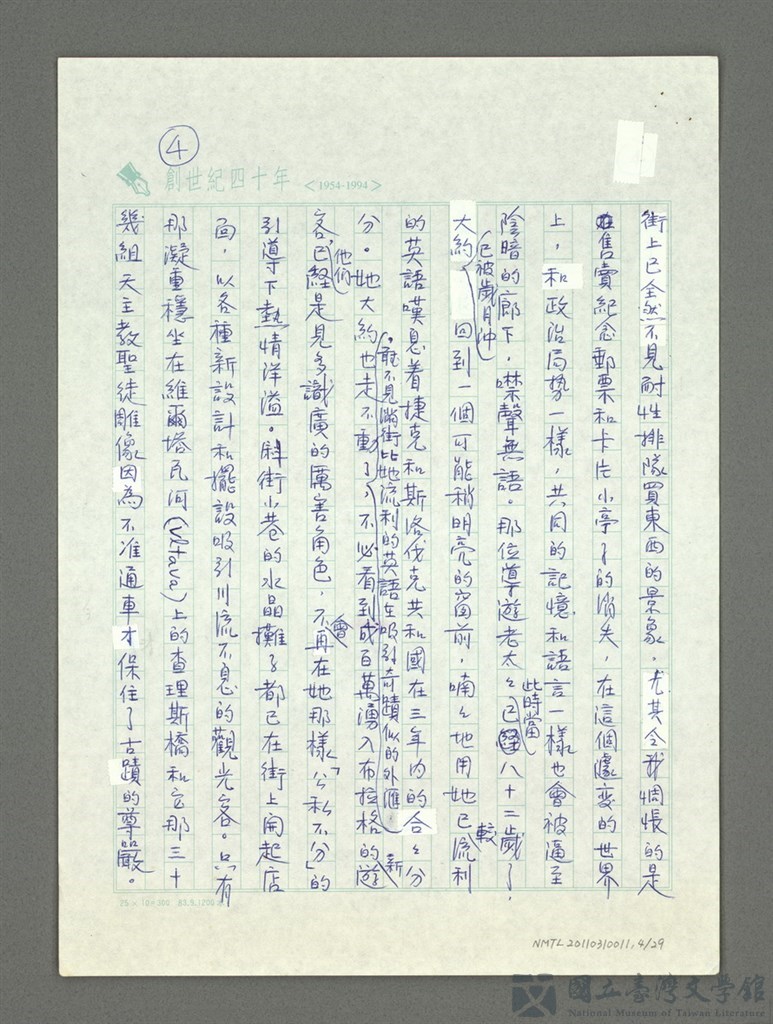 ④
創世紀四十年 <1954-1994>
街上已全然不見耐性排隊買東西的景象。尤其令我惆悵的是
售賣紀念郵票和卡片小亭子的消失,在這個劇變的世界
上,和政治局势一樣,共同的記憶和語言一樣也會被逼至
陰暗的廊下,噤聲無語。那位導遊老太々此時當已八十二歲了,
大約已被歲月沖回到一個可能稍明亮的窗前,喃々地用她已流利
的英語嘆息着捷克和斯洛伐克共和國在三年內的合々分
分。她大約也走不動了,不必看到成百萬湧入布拉格的遊
。敢不見滿街比她流利的英語在吸引奇蹟似的外匯
較
新
客,他們已経是見多識廣的厲害角色,不會再在她那樣「公私不分」的
引導下熱情洋溢。斜街小巷的水晶攤子都已在街上開起店
面,以各種新設計和擺設吸引川流不息的觀光客。只有
那凝重穩坐在維爾塔瓦河(Vltava)上的查理斯橋和它那三十
幾組天主教聖徒雕像因為不准通車才保住了古蹟的尊嚴。
25×10=300
NMTL 20110310011, 4/29
國立臺灣文學館
National Museum of Taiwan Literature